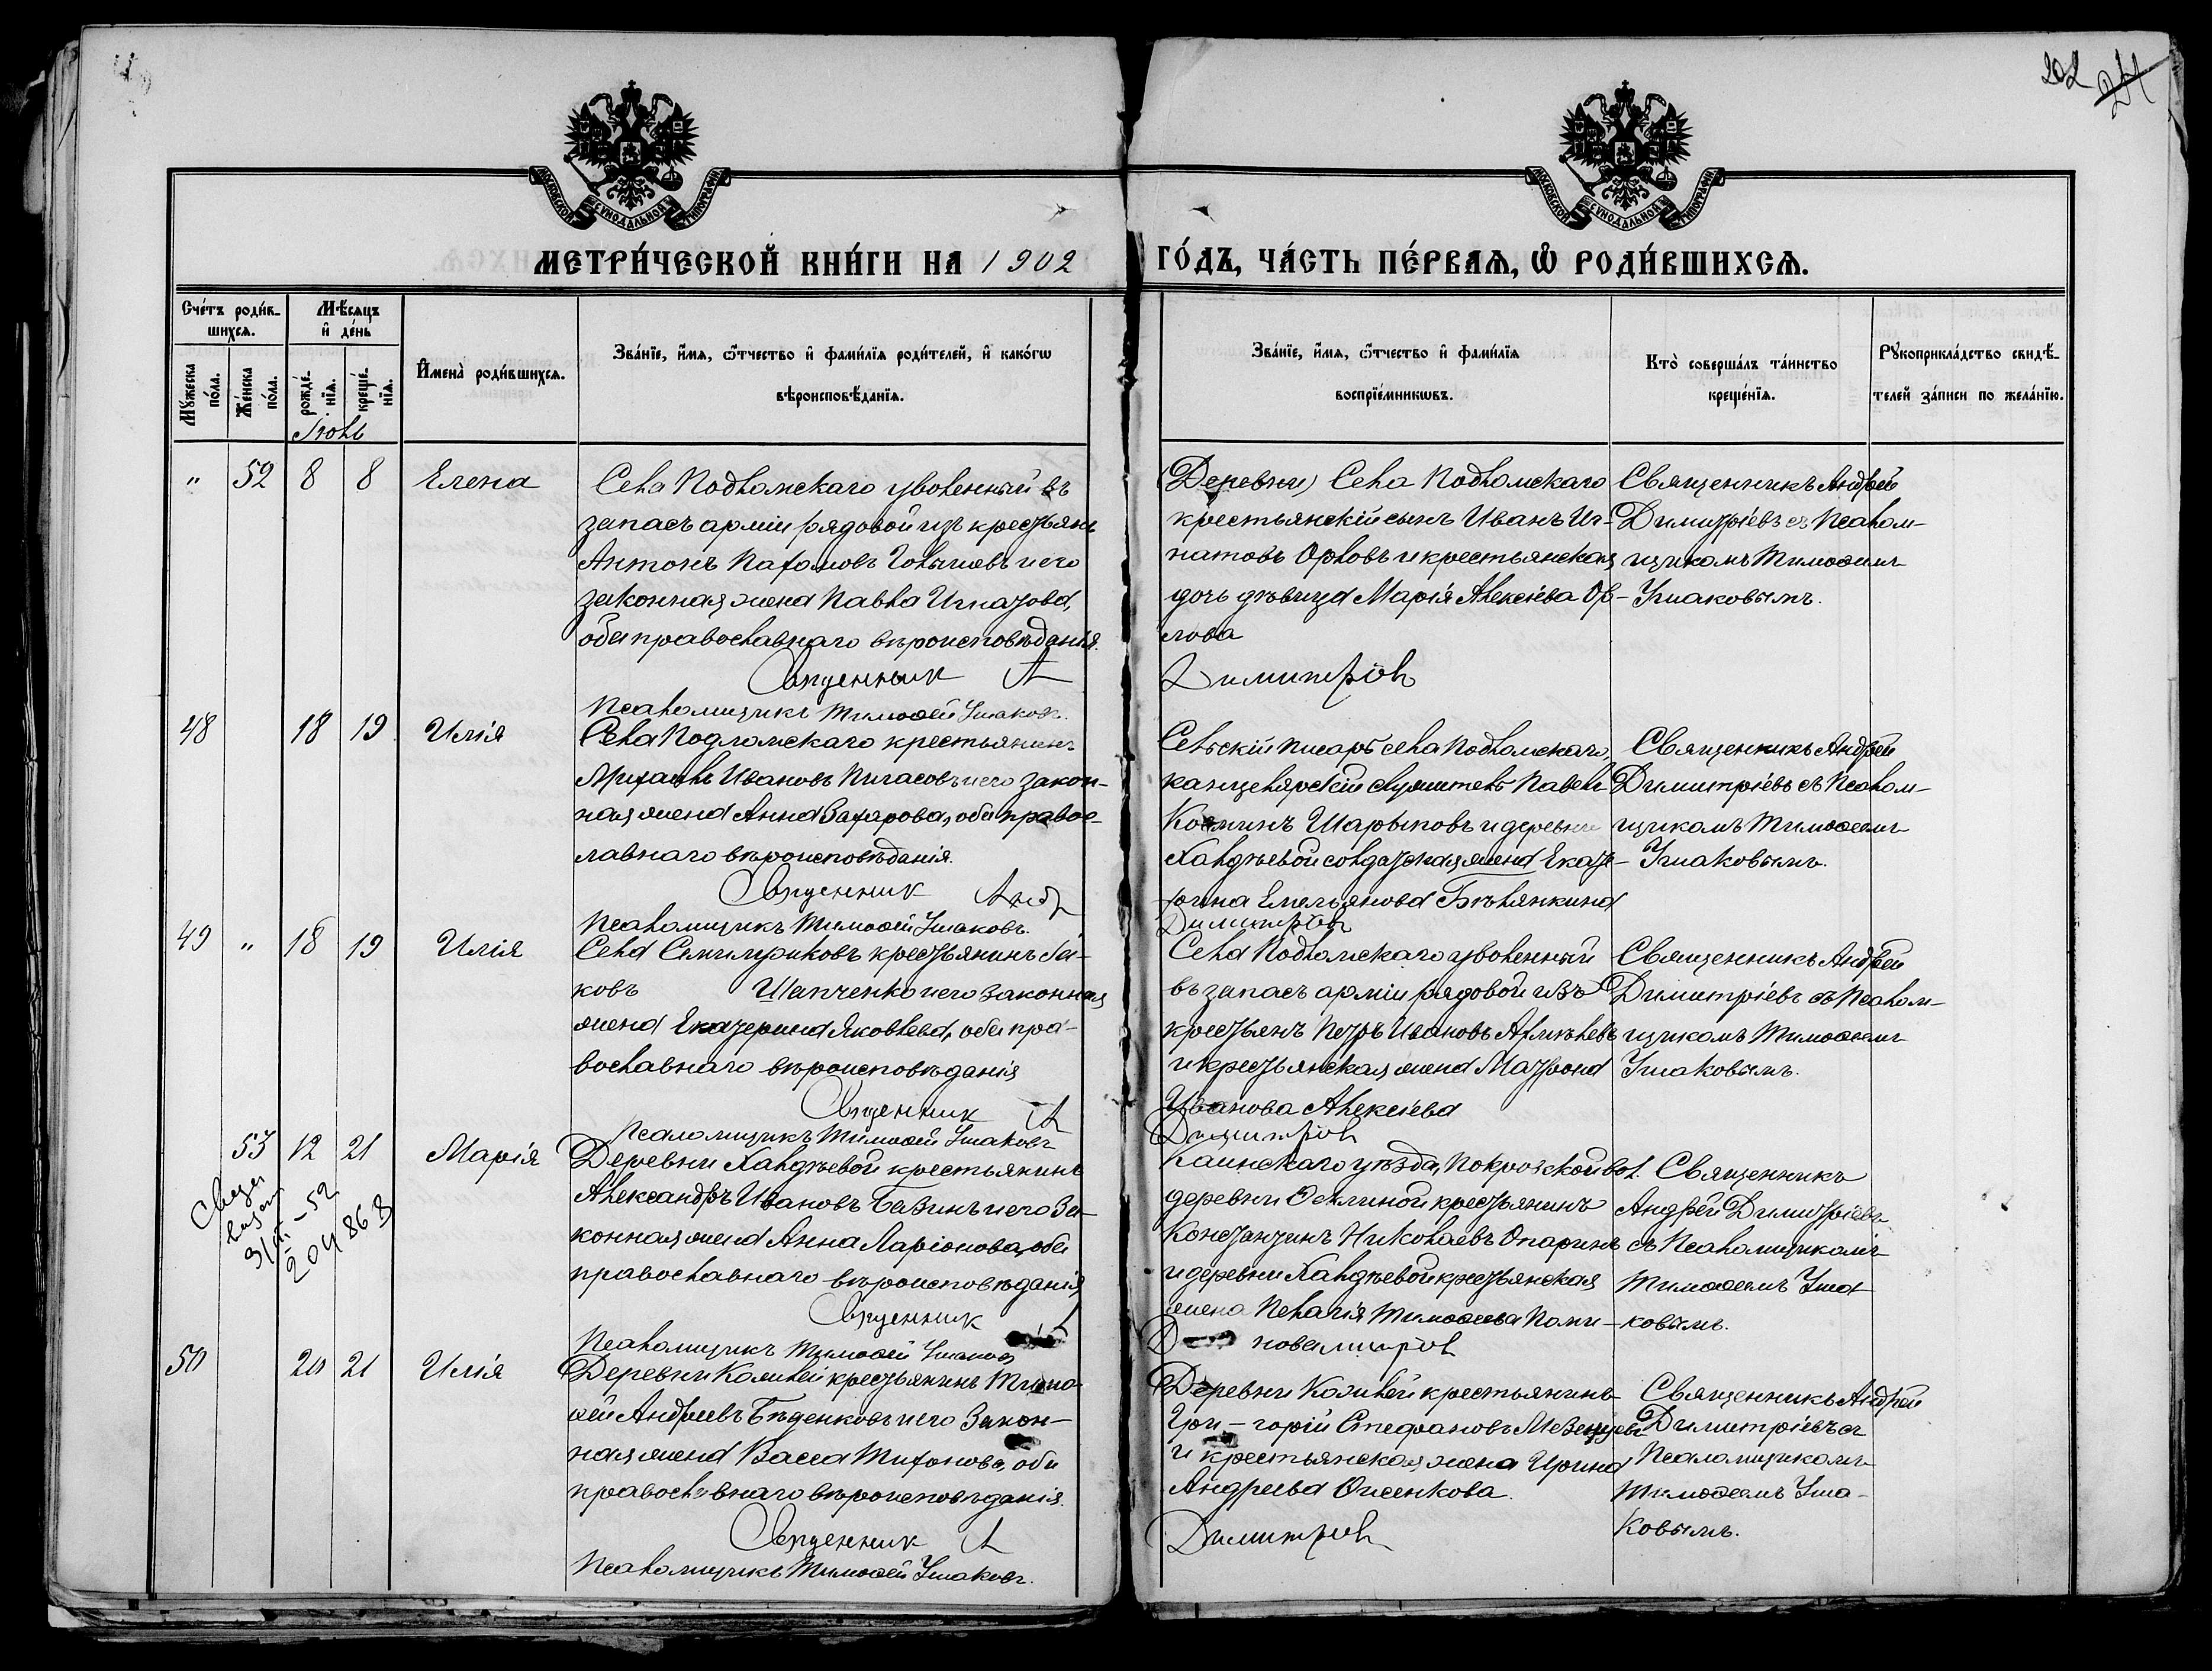 202 241
МОСКОВСКОЙ СѴНОДАЛЬНОЙ ТИПОГРАФІИ
МОСКОВСКОЙ СѴНОДАЛЬНОЙ ТИПОГРАФІИ
МЕТРИ́ЧЕСКОЙ КНИ́ГИ НА 1902 ГО́ДЪ, ЧА́СТЬ ПЕ́РВАѦ, Ѡ҆ РОДИ́ВШИХСѦ.
Сче́тъ роди́в-
шихсѧ.
Мꙋ́жеска по́ла.
Же́нска по́ла.
Мѣ́сѧцъ
и҆ де́нь
рожде́-нїѧ.
креще́-нїѧ.
Іюль
И҆мена̀ роди́вшихсѧ.
Зва́нїе, и҆́мѧ, ѻ҆́тчество и҆ фами́лїѧ роди́телей, и҆ како́гѡ
вѣроисповѣ́данїѧ.
Зва́нїе, и҆́мѧ, ѻ҆́тчество и҆ фами́лїѧ
воспрїе́мникѡвъ.
Кто̀ соверша́лъ та́инство
креще́нїѧ.
Рꙋкоприкла́дство свидѣ́-
телей за́писи по жела́нїю.
" 52 8 8 Елена
Села Подломскаго уволенный въ
запасъ арміи рядовой изъ крестьянъ
Антонъ Пахомовъ Голышевъ и его
законная жена Павла Игнатова,
оба православнаго вѣроисповѣданія.
Священникъ А
Псаломщикъ Тимоѳей Ушаковъ.
(Деревни) Села Подломскаго
крестьянскій сынъ Иванъ Иг-
натовъ Орловъ и крестьянская
дочь дѣвица Марія Алексіева Ор-
лова
Димитріев
Священникъ Андрей
Димитріевъ съ Псалом-
щикомъ Тимоѳеемъ
Ушаковымъ.
48 18 19 Илія
Села Подломскаго крестьянинъ
Михаилъ Ивановъ Пигасовъ и его закон-
ная жена Анна Захарова, оба правос-
лавнаго вѣроисповѣданія.
Священникъ Андр
Псаломщикъ Тимоѳей Ушаковъ.
Сельскій писарь села Подломскаго,
канцелярскій служитель Павелъ
Козминъ Шарыповъ и деревни
Халдѣевой солдатская жена Екате-
рина Емельянова Бѣлянкина
Димитріев
Священникъ Андрей
Димитріевъ съ Псалом-
щикомъ Тимоѳеемъ
Ушаковымъ.
49 " 18 19 Илія
Села крестьянинъ Іа-
ковъ Шапченко и его законная
жена Екатерина Яковлева, оба пра-
вославнаго вѣроисповѣданія
Священникъ А
Псаломщикъ Тимоѳей Ушаковъ
Села Подломскаго уволенный
въ запасъ арміи рядовой изъ
крестьянъ Петръ Ивановъ
и крестьянская жена Матрона
Иванова Алексіева
Димитріев
Священникъ Андрей
Димитріевъ съ Псалом-
щикомъ Тимоѳеемъ
Ушаковымъ.
53 12 21 Марія
3/VI-52
204868
Деревни Халдѣевой крестьянинъ
Александръ Ивановъ Базинъ и его за-
конная жена Анна Ларіонова, оба
православнаго вѣроисповѣданія
Священникъ
Псаломщикъ Тимоѳей Ушаковъ
Каинскаго уѣзда, Покровской вол.
деревни Осклиной крестьянинъ
Константинъ Николаевъ Опаринъ
и деревни Халдѣевой крестьянская
жена Пелагія Тимоѳеева
Священникъ
Андрей Димитріевъ
съ Псаломщикомъ
Тимоѳеемъ Уша-
ковымъ.
50 20 21 Илія
Деревни крестьянинъ Тимо-
ѳей Андреевъ Бѣденковъ и его закон-
ная жена Васса Тихонова, оба
православнаго вѣроисповѣданія.
Священникъ А
Псаломщикъ Тимоѳей Ушаковъ.
Деревни крестьянинъ
Гри-горій Стефановъ Мезенцевъ
и крестьянская жена Ирина
Андреева
Димитріев
Священникъ Андрей
Димитріевъ съ
Псаломщикомъ
Тимоѳеемъ Уша-
ковымъ.